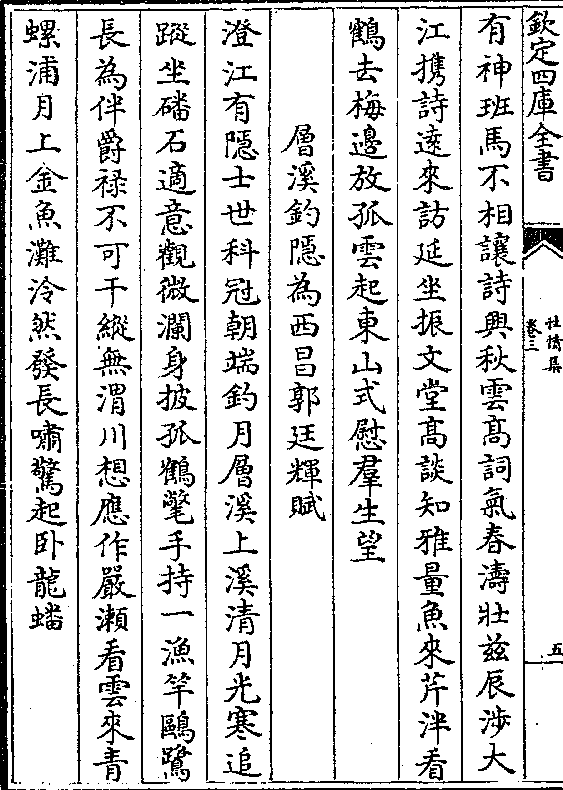 欽定四庫全書
杜情集
卷三
五
有神班馬不相讓詩興秋雲髙詞氣春濤壯兹辰渉大
江攜詩遠來訪延坐振文堂髙談知雅量魚來芹泮看
鶴去梅邉放孤雲起東山式慰羣生望
層溪釣隠為西昌郭廷輝賦
澄江有隠士世科冠朝端釣月層溪上溪清月光寒追
蹤坐磻石適意觀微瀾身披孤鶴氅手持一漁竿鷗鷺
長為伴爵禄不可干縱無渭川想應作嚴瀬看雲來青
螺浦月上金魚灘泠然發長嘯驚起卧龍蟠